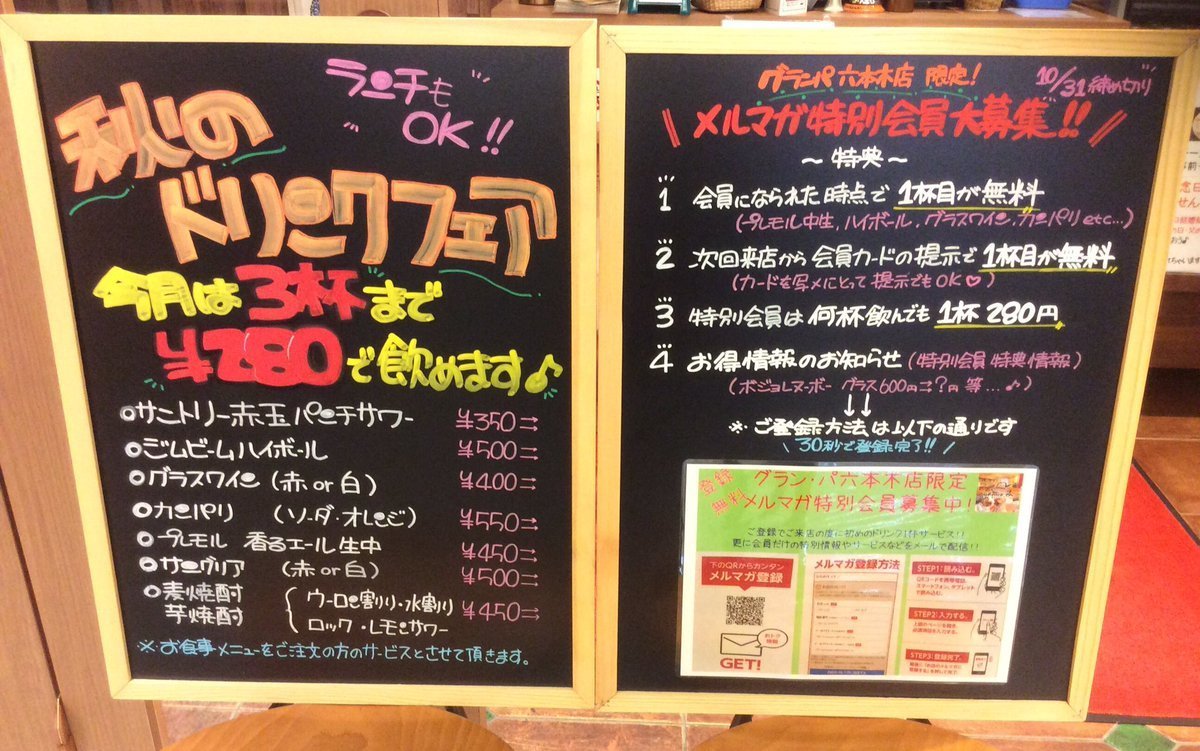 ランチも
OK!!
秋の
ドリンクフェア
今月は3杯まで
¥280で飲めます♪
サントリー赤玉パンチサワー ¥350→
ジムビームハイボール ¥500→
グラスワイン(赤or白) ¥400→
カンパリ (ソーダ・オレンジ) ¥550→
プレモル 香るエール生中 ¥450→
サングリア (赤or白) ¥500→
麦焼酎
芋焼酎
ウーロン割り・水割り
ロック・レモンサワー
¥450→
※お食事メニューをご注文の方のサービスとさせて頂きます。
グランパ六本木店 限定!
10/31締め切り
メルマガ特別会員大募集!!
〜特典〜
1 会員になられた時点で 1杯目が無料
(プレモル中生,ハイボール,グラスワイン,カンパリetc...)
2 次回来店から会員カードの提示で1杯目が無料
(カードを写メにとって提示でもOK♡)
3 特別会員は何杯飲んでも1杯280円
4 お得情報のお知らせ(特別会員特典情報)
(ボジョレヌーボー グラス600円→?円 等…♪)
↓↓
※ご登録方法は以下の通りです
30秒で登録完了!!
登録
無料
グラン・パ六本木店限定
メルマガ特別会員募集中!
ご登録でご来店の度に初めのドリンク1杯サービス!!
更に会員だけの特別情報やサービスなどをメールで配信!!
下のQRからカンタン
メルマガ登録
GET!
メルマガ登録方法
STEP1:読み込む。
QRコードを携帯電話、
スマートフォン、タブレット
で読み込む。
STEP2:入力する。
STEP3:登録完了。